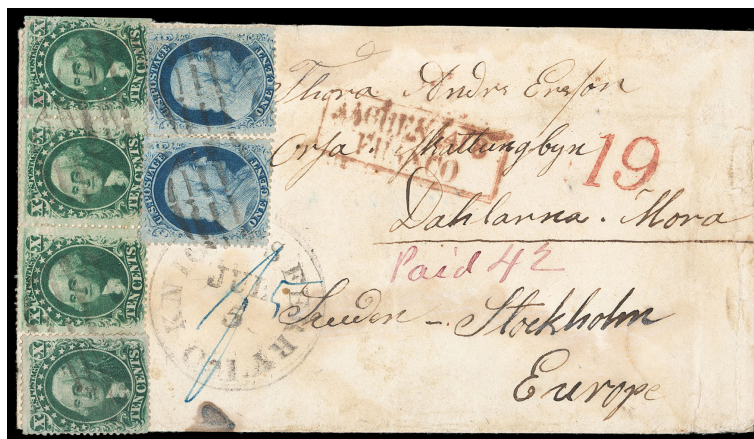 X TEN CENTS. X
U.S. POSTAGE
ONE CENT.
X TEN CENTS. X
U.S. POSTAGE
ONE CENT.
X TEN CENTS. X
X TEN CENTS. X
Thora Andrs Ersson
AACHEN
FRANCO
Orsa. Skattungbyn
19
Dahlarna. Mora
Paid 42
JUL
5
Sueden - Stockholm
Europe